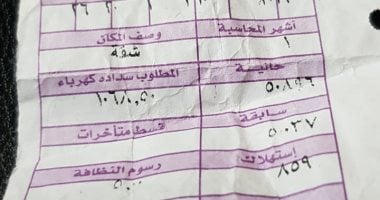 أشهر المحاسبة وصف المكان
١ شقة
حالية المطلوب سداده كهرباء
٥٠٨٩٦ ١٠٦٨,٥٠
سابقة قسط متأخرات
٥٠٠٣٧
استهلاك رسوم النظافة
٨٥٩